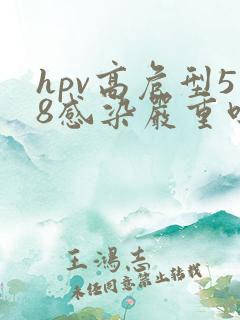 hpv高危型5
8感染嚴重
王鴻志
未经同意禁止转载